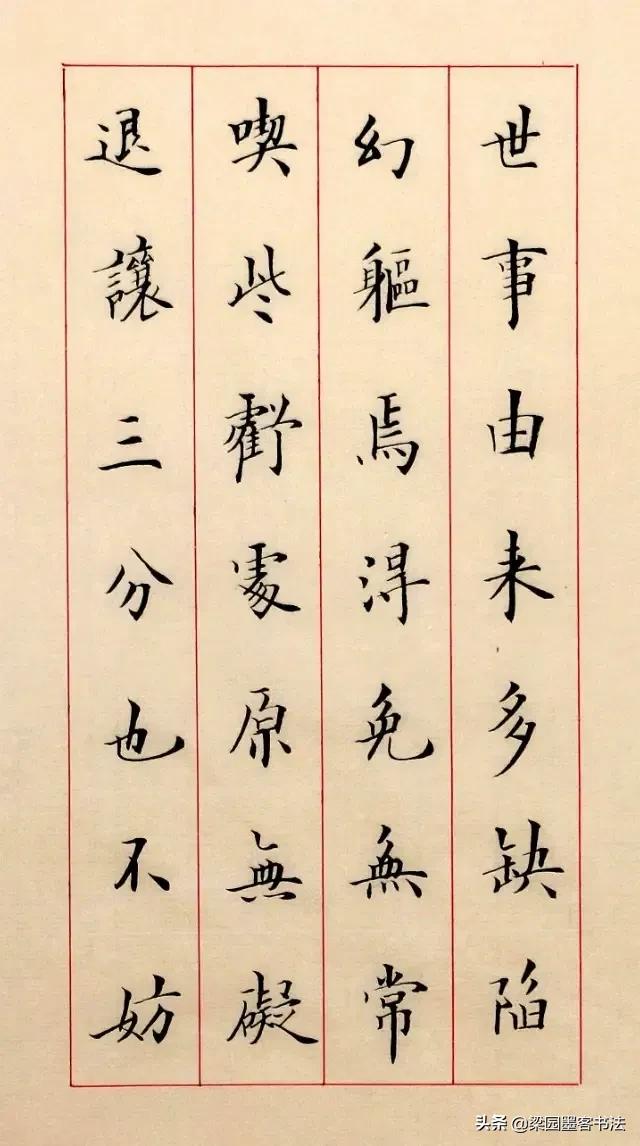 世事由来多缺陷
幻軀焉得免無常
喫些虧處原無礙
退讓三分也不妨
头条 @梁园墨客书法